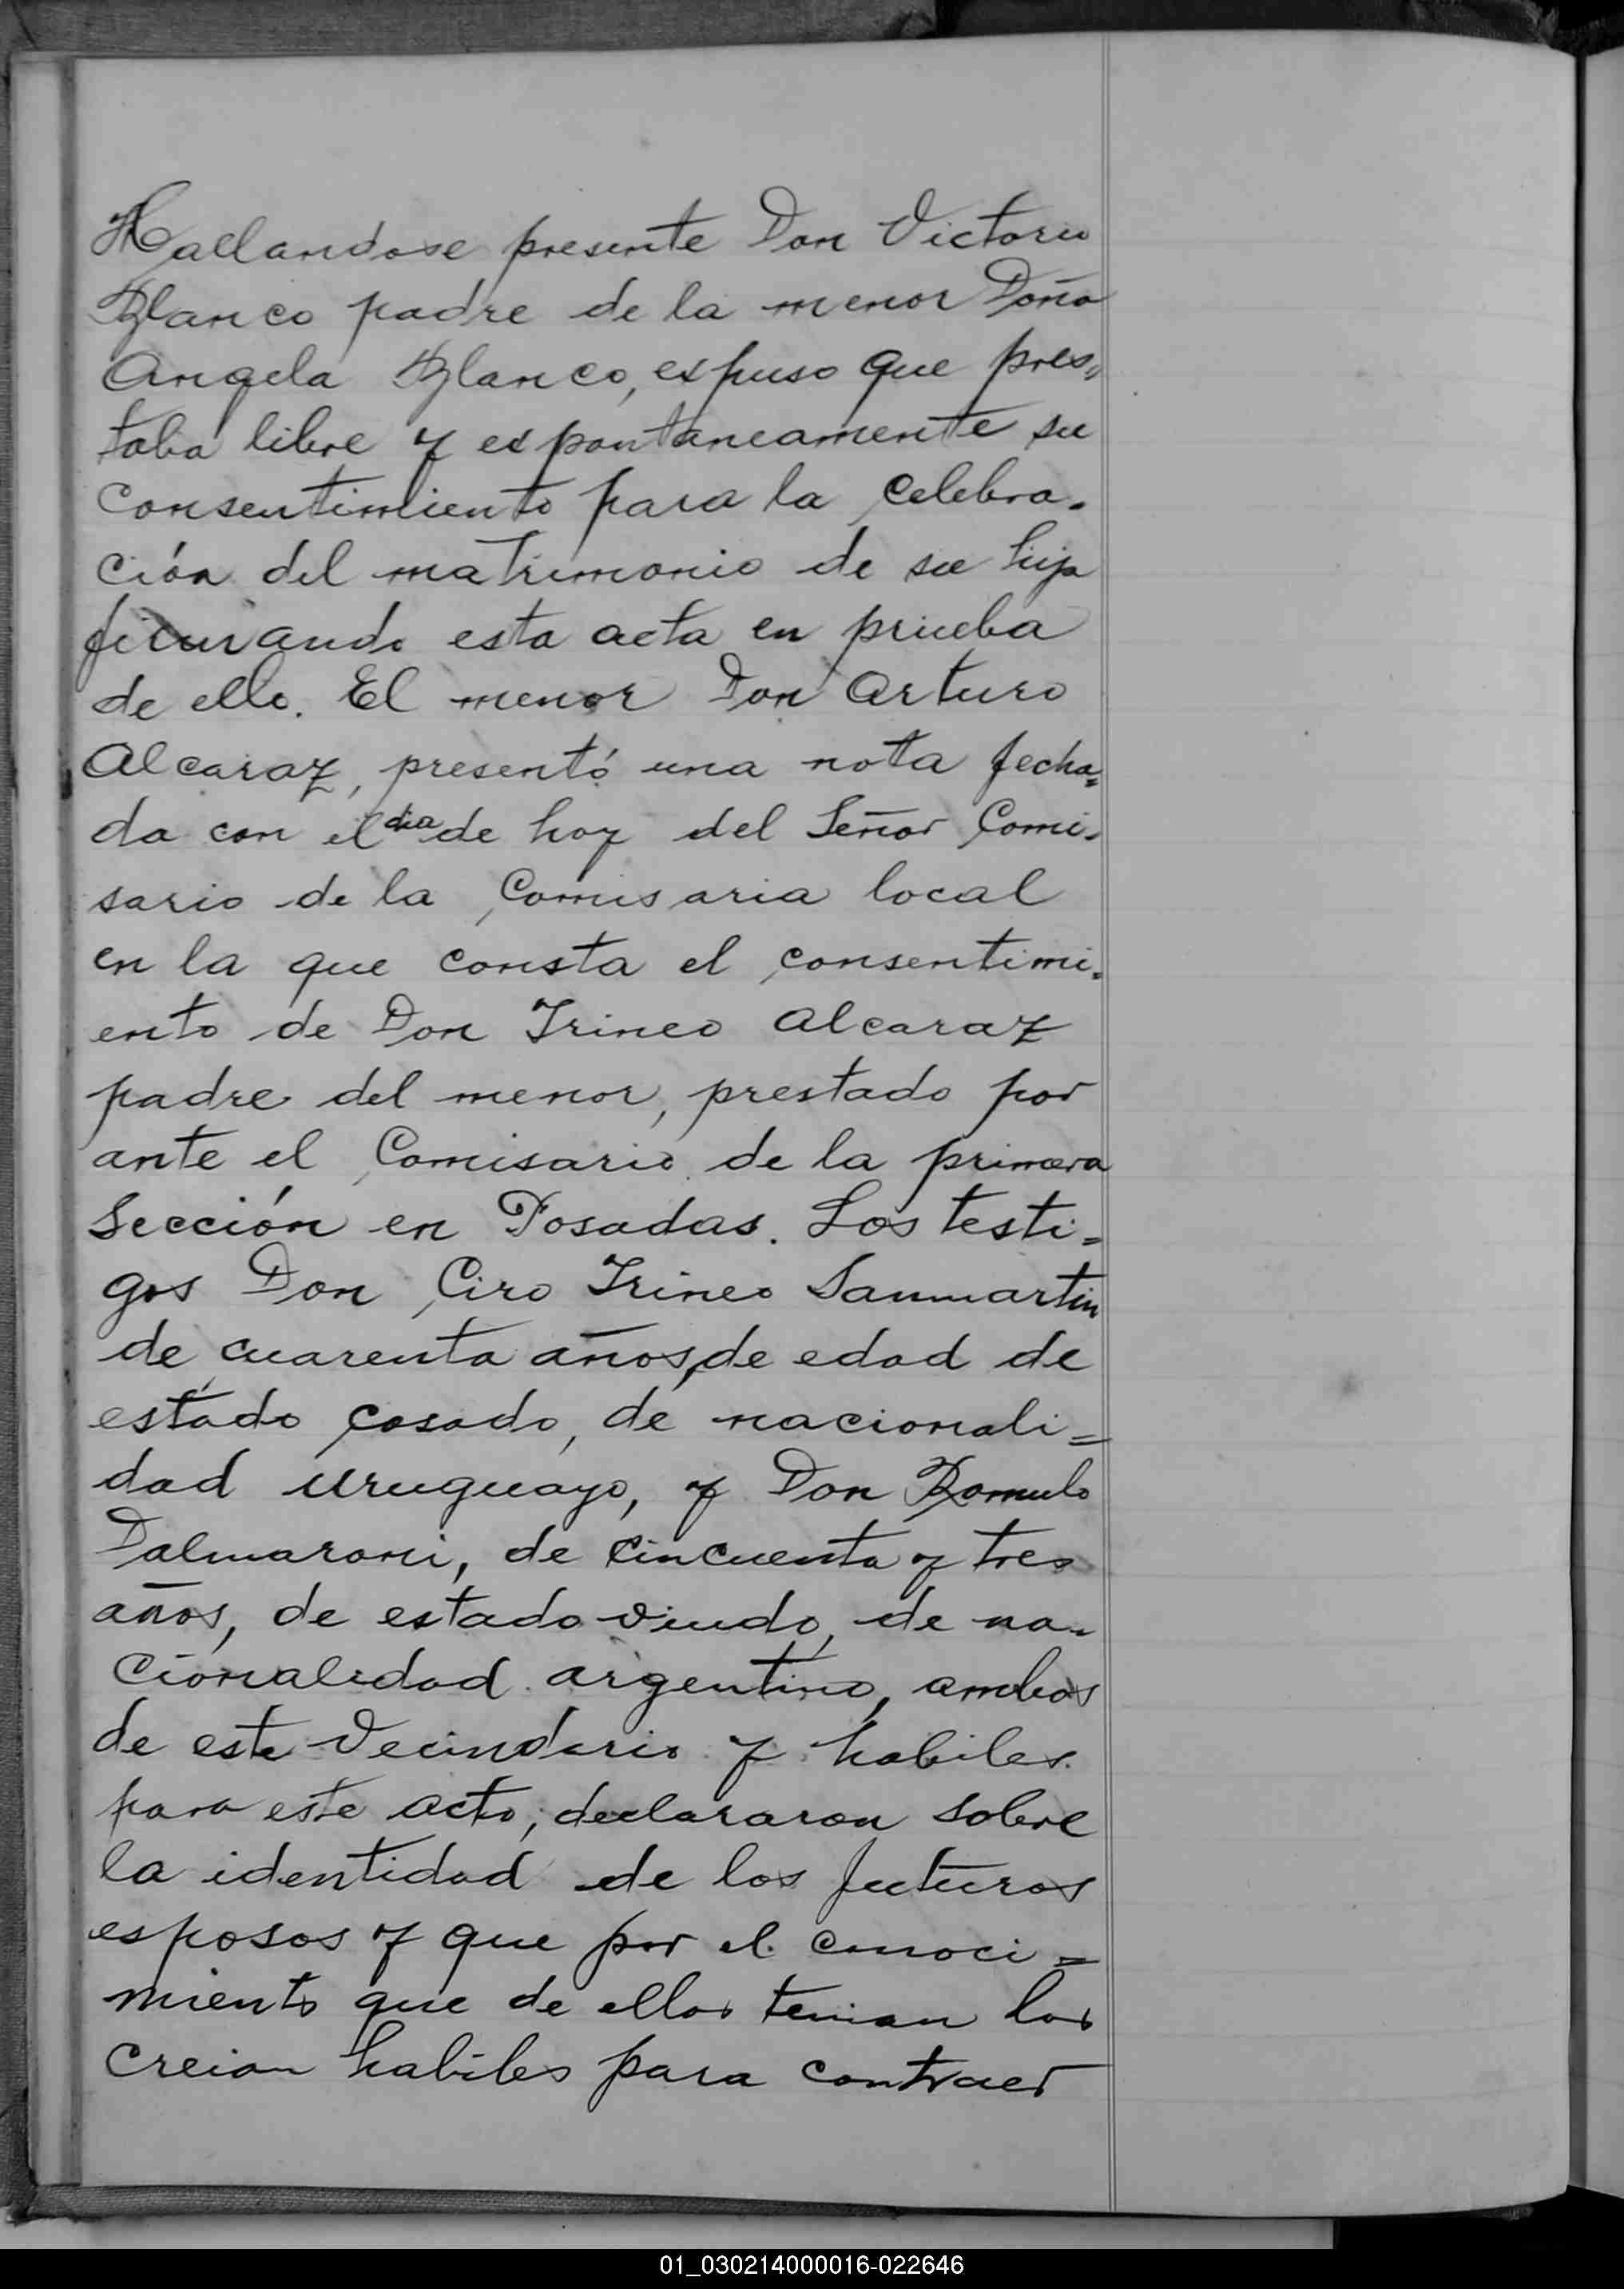 Hallandose presente Don Victorio
Blanco padre de la menor Doña
Angela Blanco, expuso que pres=
taba libre y expontaneamente su
consentimiento para la celebra=
ción del matrimonio de su hija
firmando esta acta en prueba
de ello. El menor Don Arturo
Alcaraz, presentó una nota fecha=
da con el dia de hoy del Señor Comi=
sario de la Comisaria local
en la que consta el consentimi=
ento de Don Irineo Alcaraz
padre del menor, prestado por
ante el Comisario de la primera
Sección en Posadas. Los testi=
gos Don Ciro Irineo Sanmartin
de cuarenta años, de edad de
estado casado, de nacionali=
dad uruguayo, y Don Romulo
Dalmaroni, de cincuenta y tres
años, de estado viudo, de na=
cionalidad argentino, ambos
de este vecindario y habiles
para este acto; declararon sobre
la identidad de los futuros
esposos y que por el conoci=
miento que de ellos tenian los
creian habiles para contraer
01_030214000016-022646